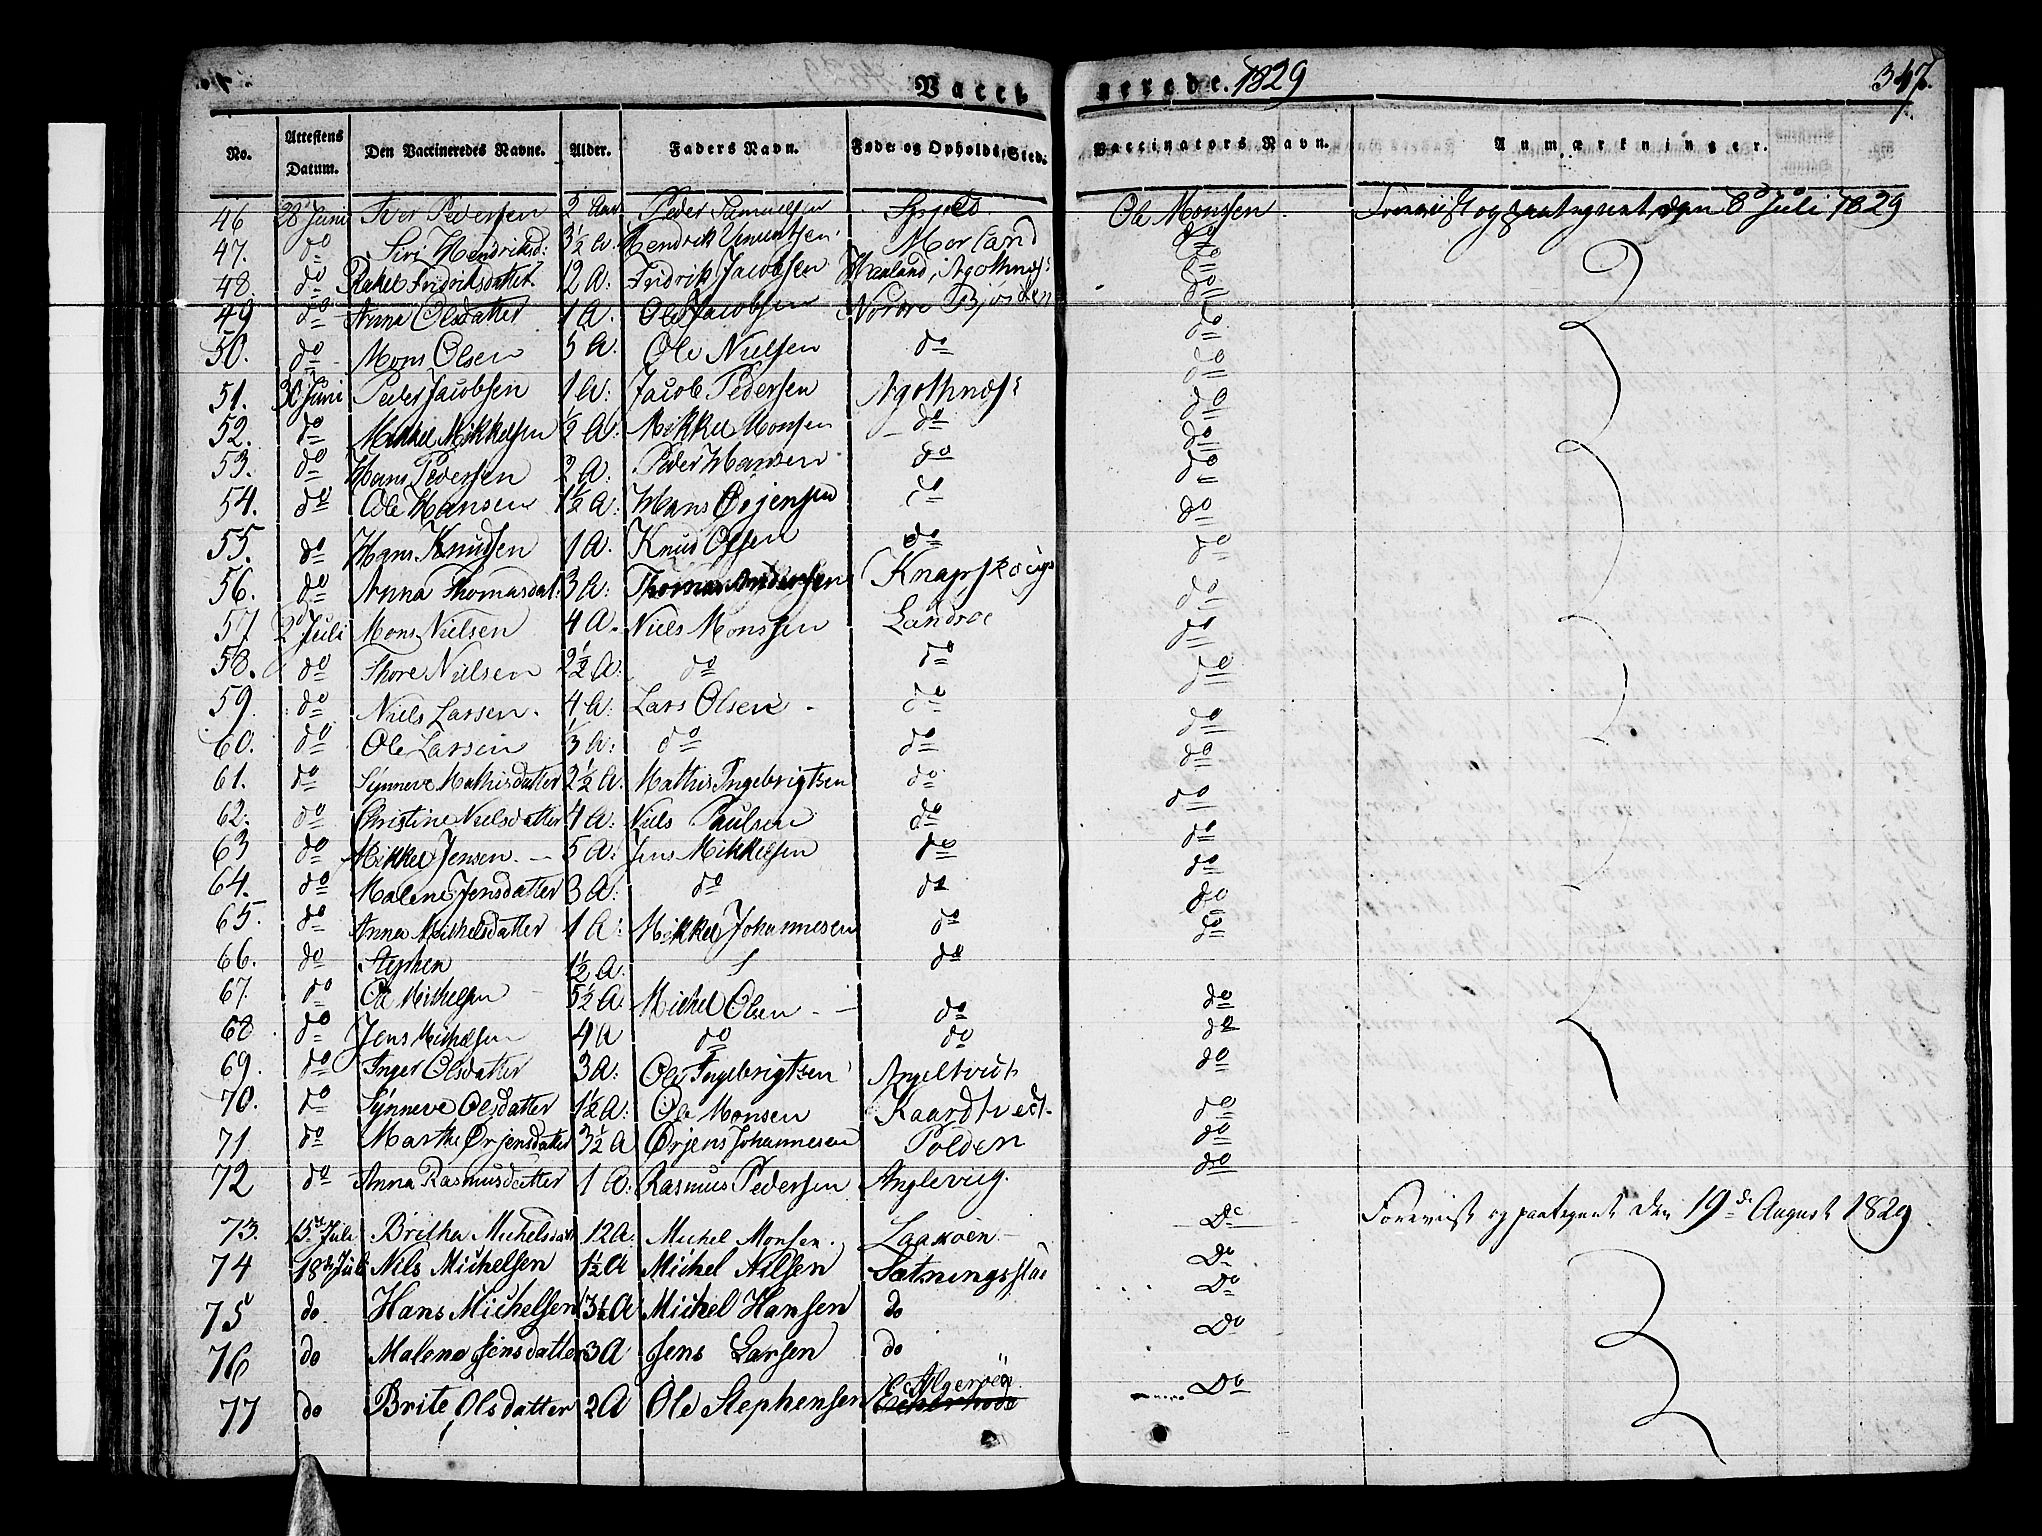 Vacci nerede. 1829 347.
No. Attestens Datum. Den Vaccineredes Navne. Alder. Faders Navn. Føde og Opholds-Sted. Vaccinators Navn. Anmærkninger.
46 28 Juni Iver Pedersen 2 Aar Peder Samuelsen Spjeld Ole Monssen Foreviist og paategnet den 8d Juli 1829
47. do Siri Hendriksd: 3½ A Hendrik Morland do
48. do Rakel Fridriksdatter 12 A: Fridrik Jacobsen Haaland, Agothnæs do
49 do Anna Olsdatter 1 A. Ole Jacobsen Nordre Bjorøen do
50. do Mons Olsen 5 A. Ole Nielsen do do
51. 30 Juni Peder Jacobsen 1 A: Jacob Pedersen Agothnæs do
52. do Mikkel Mikkelsen ½ A: Mikkel Monsen do do
53. do Hans Pedersen 2 A: Peder Hansen do do
54. do Ole Hansen 1½ A: Hans Ørjensen do do
55. do Hans Knudsen 1 A. Knud Olsen do do
56. do Anna Thomasdat: 3 A: Thomas Andersen Knapskoug do
57 2d Juli Mons Nielsen 4 A. Niels Monssen Landroe do
58. do Thore Nielsen 2½ A: do do do
59. do Niels Larsen 4 A: Lars Olsen do do
60. do Ole Larsen ⅓ A: do do do
61. do Synneve Mathisdatter 2½ A. Mathis Ingebrigtsen do do
62. do Christine Nielsdatter 4 A: Niels Paulsen do do
63 do Mikkel Jensen 5 A: Jens Mikkelsen do do
64. do Malene Jensdatter 3 A: do do do
65. do Anna Michelsdatter 1 A: Mikkel Johannesen do do
66. do Stephen 1½ A. do do
67. do Ole Mikkelsen 5½ A: Michel Olsen do do
68 do Jens Michelsen 4 A do do do
69. do Inger Olsdatter 3 A: Ole Ingebrigtsen Angeltveit do
70. do Synneve Olsdatter 1½ A: Ole Monsen Kaardtvedt do
71 do Marthe Ørjensdatter 3½ A Ørjens Johannesen Polden do
72 do Anna Rasmusdatter 1 A: Rasmus Pedersen Anglevig. do
73. 15de Juli Britha Michelsdatt 12 A: Michel Monsen. Laaxøen Do Foreviist og paategnet den 19de August 1829
74 18de Juli Nils Michelsen 1½ A Michel Nilsen Sætningsstad Do
75 do Hans Michelsen 3½ A Michel Hansen do Do
76 do Malene Jensdatter 3 A Jens Larsen do Do
77 do Brite Olsdatter 2 A Ole Stephensen Algerøen Do